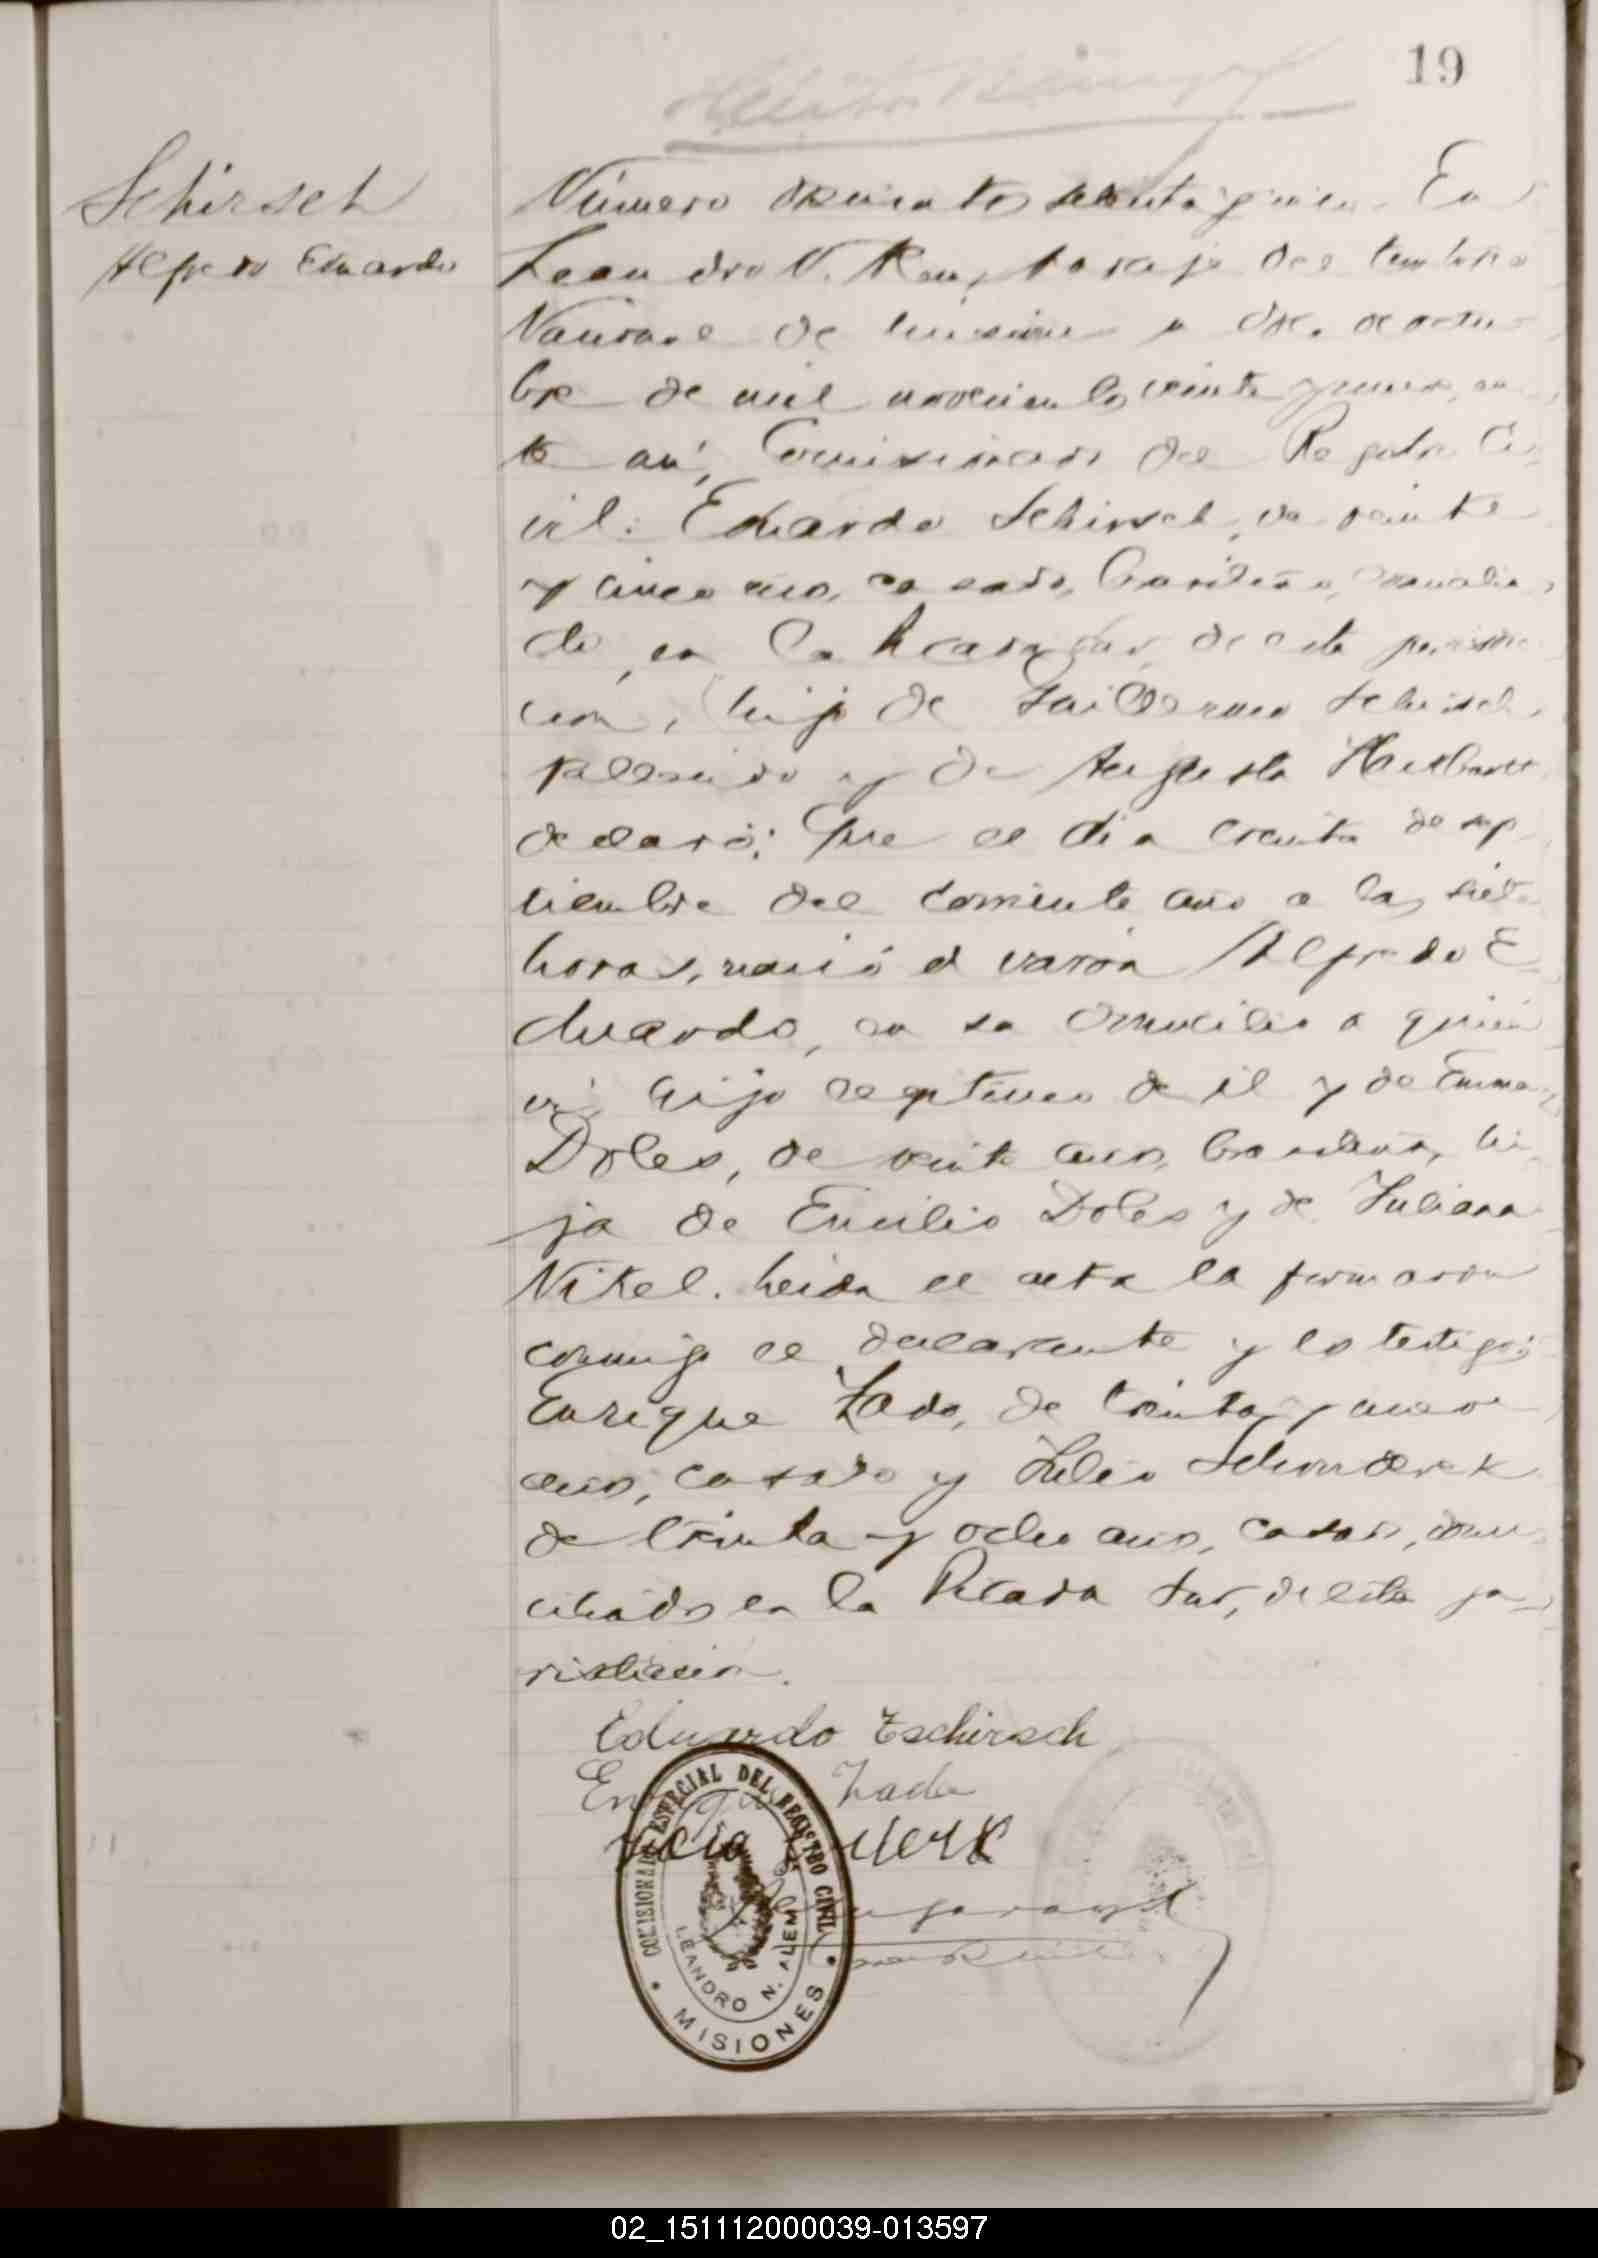 19
Schirsch
Alfredo Eduardo
Número doscientos setenta y En
Leandro N. Alem, paraje del territorio
Nacional de Misiones a doce de octu-
bre de mil novecientos veinte y nueve, an-
te mí, Comisionado del Registro Ci-
vil: Eduardo Schirsch, de veinte
y cinco años, casado, brasileño, domicilia-
do en la Picada Sur, de esta jurisdic-
cion, hijo de Guillermo Schirsch,
fallecido y de Augusta
declaró: Que el dia treinta de sep-
tiembre del corriente año a las siete
horas, nació el varón Alfredo E-
duardo, en su domicilio a quien
vi, hijo legítimo de él y de Emma
Doles, de veinte años, brasileña, hi-
ja de Emilio Doles y de Juliana
Nikel. Leida el acta la firmaron
conmigo el declarante y los testigos
Enrique Zado, de treinta y nueve
años, casado y Julio
de treinta y ocho años, casado, domi-
ciliados en la Picada Sur, de esta ju-
risdiccion.
Eduardo Tschirsch
COMISIONADO ESPECIAL DEL REGISTRO CIVIL
LEANDRO N. ALEM
MISIONES
02_151112000039-013597